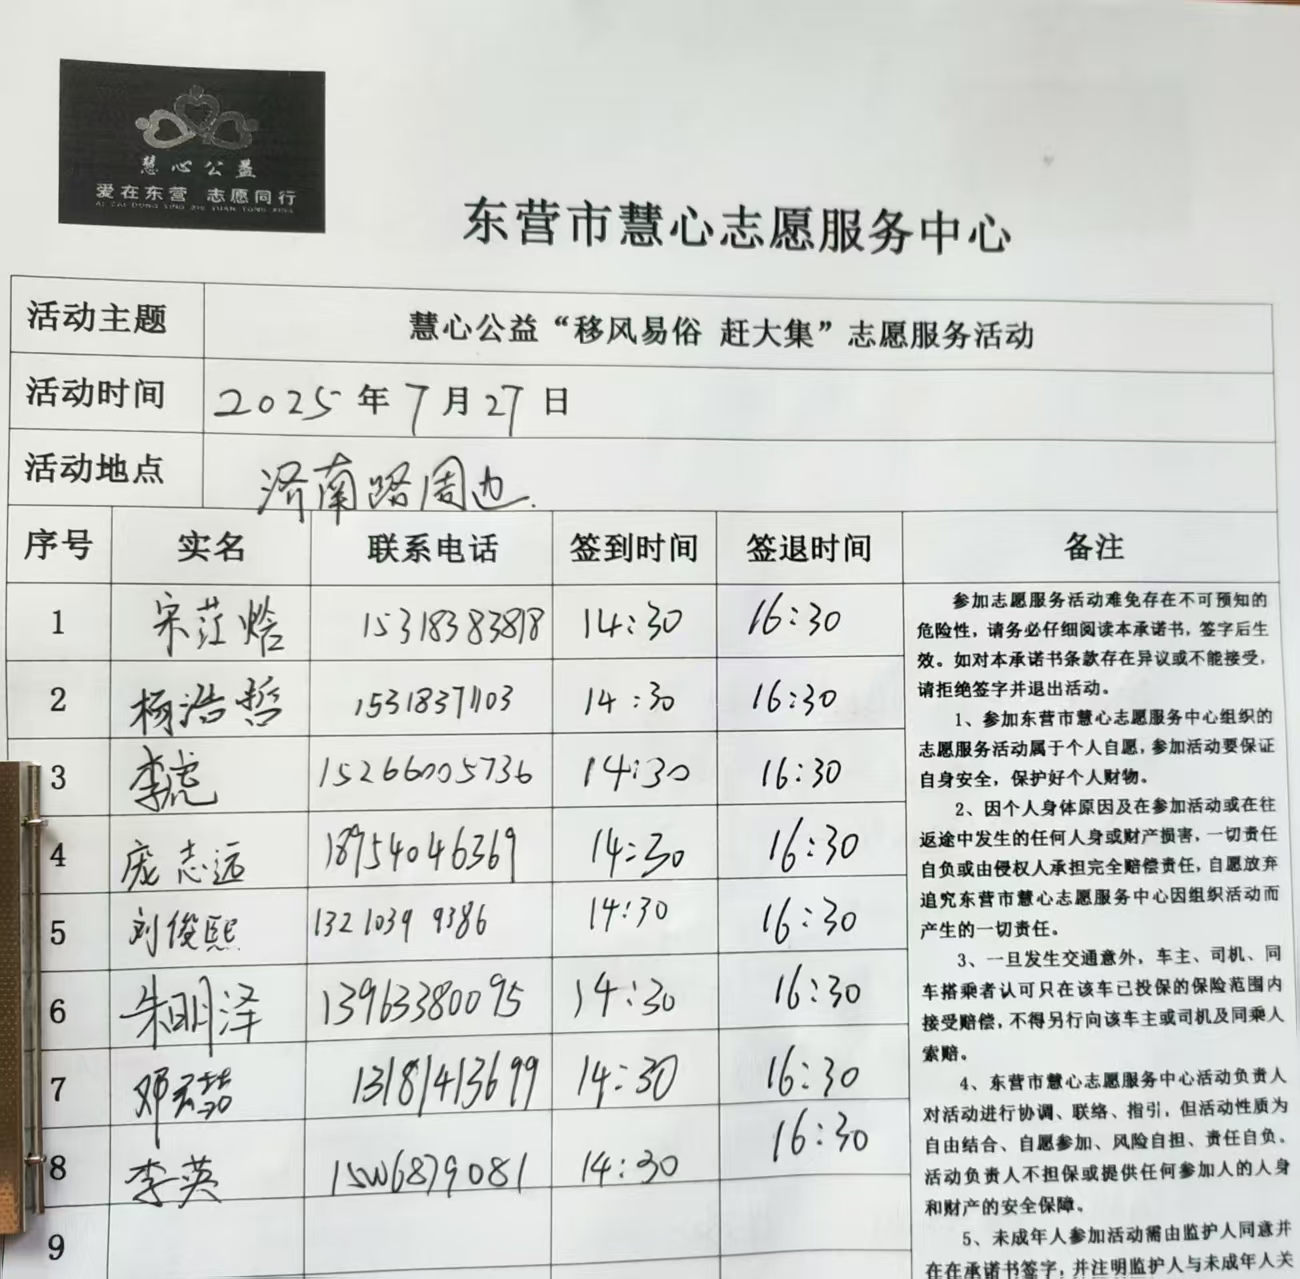 慧心公益
爱在东营 志愿同行
AI ZAI DONG YING ZHI YUAN TONG XING
东营市慧心志愿服务中心
活动主题 慧心公益“移风易俗 赶大集”志愿服务活动
活动时间 2025年7月27日
活动地点 济南路周边.
序号 实名 联系电话 签到时间 签退时间 备注
1 宋 14:30 16:30
2 杨浩哲 15318371103 14:30 16:30
3 李虎 15266005736 14:30 16:30
4 庞志远 18954046369 14:30 16:30
5 刘俊熙 1321039 9386 14:30 16:30
6 朱明泽 13963380095 14:30 16:30
7 邓 13181413699 14:30 16:30
8 李英 14:30 16:30
9
参加志愿服务活动难免存在不可预知的
危险性，请务必仔细阅读本承诺书，签字后生
效。如对本承诺书条款存在异议或不能接受，
请拒绝签字并退出活动。
1、参加东营市慧心志愿服务中心组织的
志愿服务活动属于个人自愿，参加活动要保证
自身安全，保护好个人财物。
2、因个人身体原因及在参加活动或在往
返途中发生的任何人身或财产损害，一切责任
自负或由侵权人承担完全赔偿责任，自愿放弃
追究东营市慧心志愿服务中心因组织活动而
产生的一切责任。
3、一旦发生交通意外，车主、司机、同
车搭乘者认可只在该车已投保的保险范围内
接受赔偿，不得另行向该车主或司机及同乘人
索赔。
4、东营市慧心志愿服务中心活动负责人
对活动进行协调、联络、指引，但活动性质为
自由结合、自愿参加、风险自担、责任自负。
活动负责人不担保或提供任何参加人的人身
和财产的安全保障。
5、未成年人参加活动需由监护人同意并
在在承诺书签字，并注明监护人与未成年人关